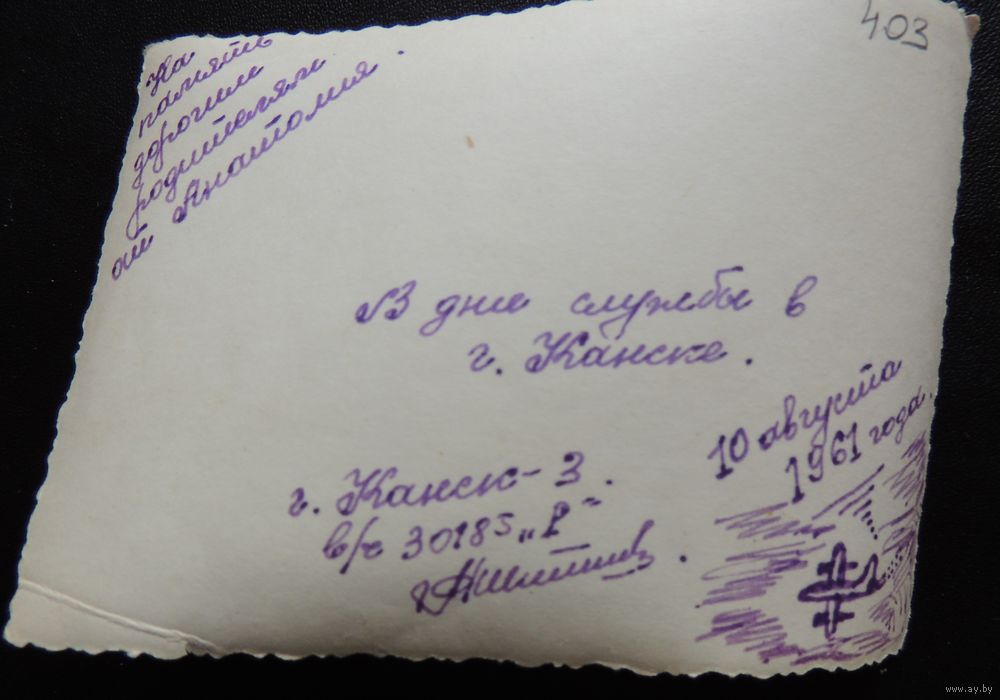 403
На
память
дорогим
родителям
от Анатолия.
В дни службы в
г. Канске.
10 августа
1961 года.
г. Канск-3.
в/ч 30185 „Р“
www.ay.by